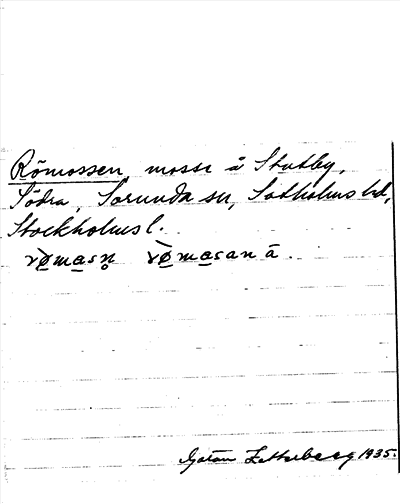 Römossen, mosse å Stutby,
Södra, Sorunda sn, Sotholms hd,
Stockholms l.
rö̀masn̥ rö̀masan ā.
Götan Zetterberg 1935.